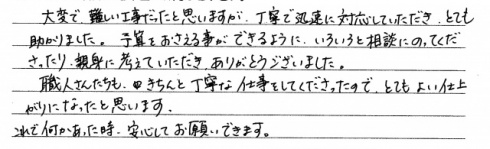 大変で難しい工事だったと思いますが、丁寧で迅速に対応していただき、とても
助かりました。予算をおさえる事ができるように、いろいろと相談にのってくだ
さったり、親身に考えていただき、ありがとうございました。
職人さんたちも、きちんと丁寧な仕事をしてくださったので、とてもよい仕上
がりになったと思います。
これで何かあった時、安心してお願いできます。